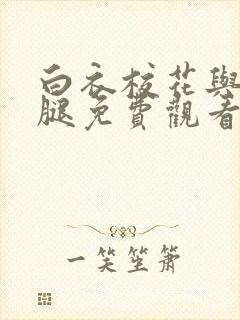 白衣校花與
腿免費觀看
一笑笙簫